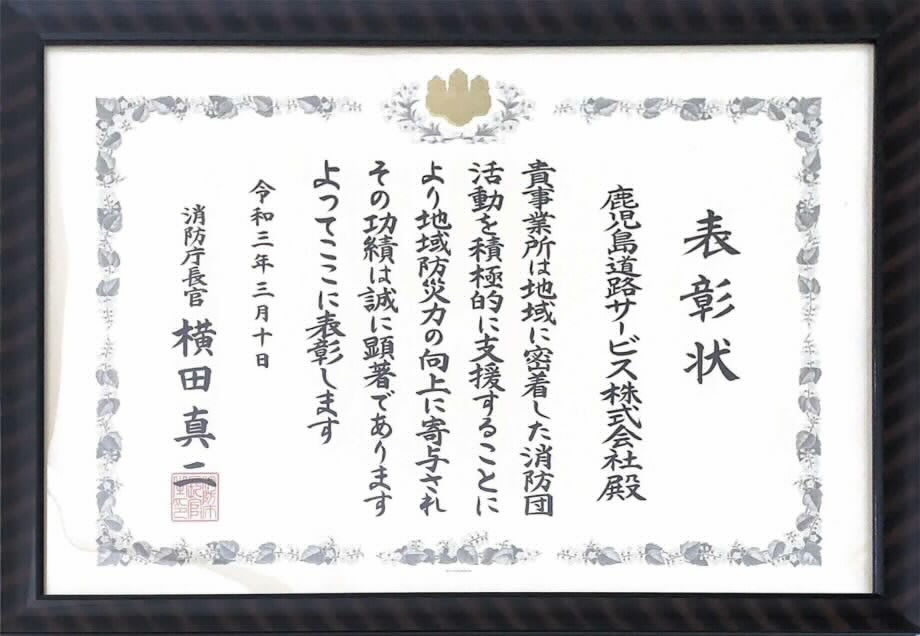 表彰状
鹿児島道路サービス株式会社殿
貴事業所は地域に密着した消防団
活動を積極的に支援することに
より地域防災力の向上に寄与され
その功績は誠に顕著であります
よってここに表彰します
令和三年三月十日
消防庁長官 横田真二